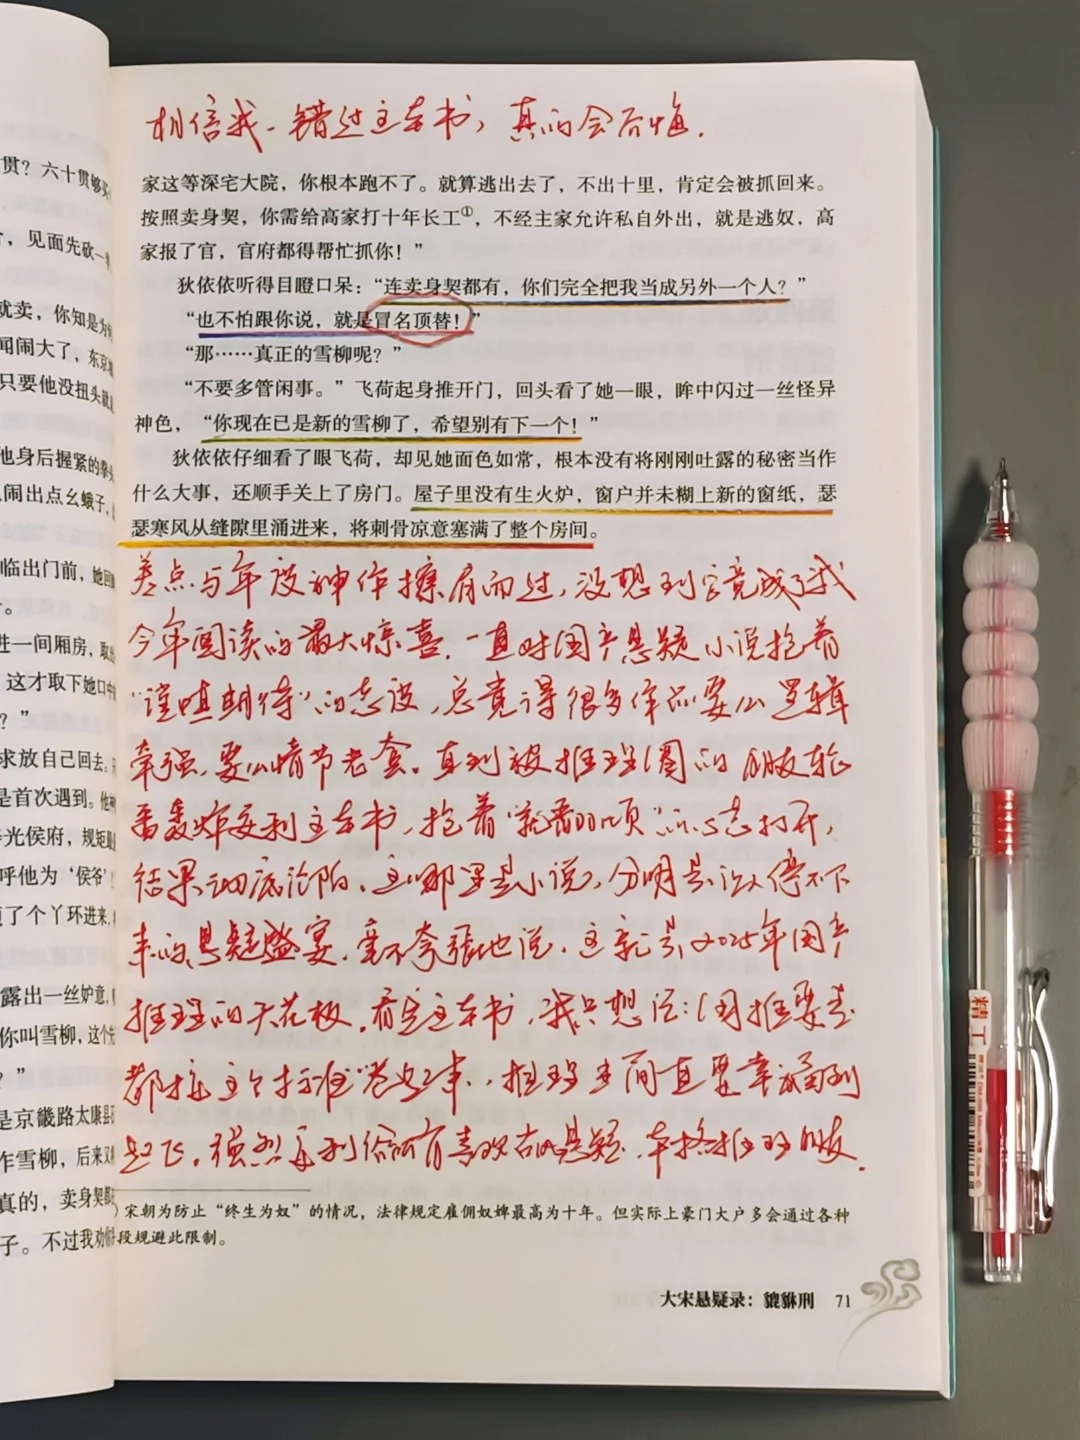 相信我、错过这本书，真的会后悔.
家这等深宅大院，你根本跑不了。就算逃出去了，不出十里，肯定会被抓回来。
按照卖身契，你需给高家打十年长工①，不经主家允许私自外出，就是逃奴，高
家报了官，官府都得帮忙抓你！”
狄依依听得目瞪口呆：“连卖身契都有，你们完全把我当成另外一个人？”
“也不怕跟你说，就是冒名顶替！”
“那……真正的雪柳呢？”
“不要多管闲事。”飞荷起身推开门，回头看了她一眼，眸中闪过一丝怪异
神色，“你现在已是新的雪柳了，希望别有下一个！”
狄依依仔细看了眼飞荷，却见她面色如常，根本没有将刚刚吐露的秘密当作
什么大事，还顺手关上了房门。屋子里没有生火炉，窗户并未糊上新的窗纸，瑟
瑟寒风从缝隙里涌进来，将刺骨凉意塞满了整个房间。
差点与年度神作擦肩而过，没想到它竟成了我
今年阅读的最大惊喜.一直对国产悬疑小说抱着
“谨慎期待”的态度，总觉得很多作品要么逻辑
牵强，要么情节老套。直到被推理圈的朋友轮
番轰炸安利这本书，抱着“就看10页”的心态打开，
结果彻底沦陷.这哪里是小说，分明是让人停不下
来的悬疑盛宴.毫不夸张地说.这就是2025年国产
推理的天花板.看完这本书，我只想说：国推要是
都按这个标准“卷起来”，推理迷简直要幸福到
起飞。强烈安利给所有喜欢古风悬疑、本格推理的朋友.
宋朝为防止“终生为奴”的情况，法律规定雇佣奴婢最高为十年。但实际上豪门大户多会通过各种
段规避此限制。
大宋悬疑录：貔貅刑 71
贯？六十贯够买
，见面先砍一
就卖，你知是为
闻闹大了，东京
只要他没扭头就
他身后握紧的拳
闹出点幺蛾子，
临出门前，她回
。
进一间厢房，取
这才取下她口中
？”
求放自己回去。
是首次遇到。他
光侯府，规矩
呼他为‘侯爷’
了个丫环进来，
露出一丝妒意，
你叫雪柳，这个
？”
是京畿路太康县
作雪柳，后来又
真的，卖身契都
子。不过我劝你
精工